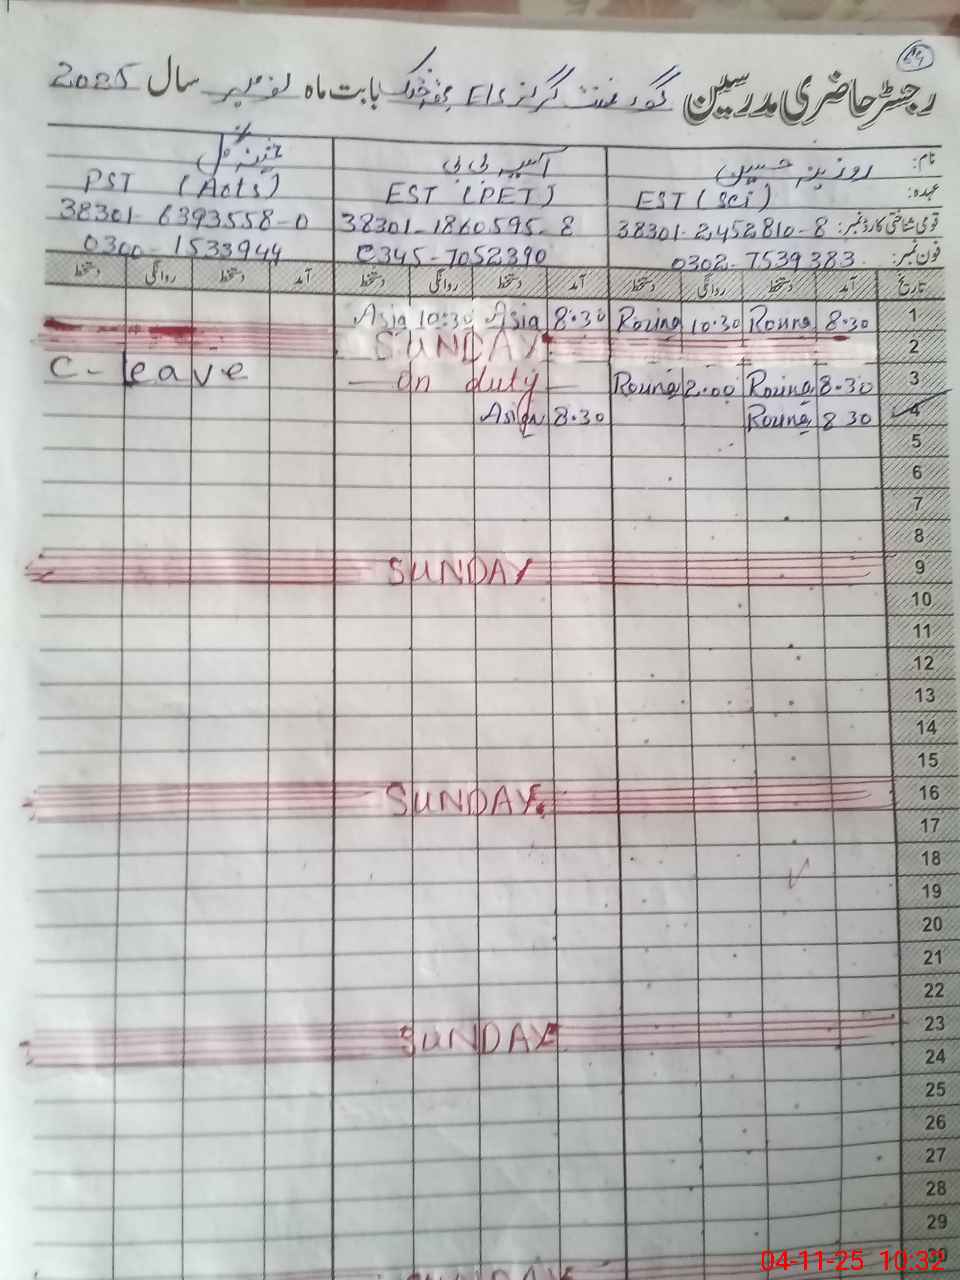 24
رجسٹر حاضری مدرسین گورنمنٹ گرلز E/S بابت ماہ نومبر سال 2025
نام: روزینہ حسین آسیہ بی بی
عہدہ: EST (Sci) EST (PET) PST (Acts)
قومی شناختی کارڈ نمبر: 38301-2452810-8 38301-1860595-8 38301-6393558-0
فون نمبر: 0302-7539383 0345-7052390 0300-1533944
تاریخ آمد دستخط روانگی دستخط آمد دستخط روانگی دستخط آمد دستخط روانگی دستخط
1 8:30 Rouna 10:30 Rouna 8:30 Asia 10:30 Asia
2 SUNDAY
3 8:30 Rouna 2:00 Rouna on duty C-leave
4 8:30 Rouna 8:30 Asia
5
6
7
8
9 SUNDAY
10
11
12
13
14
15
16 SUNDAY
17
18
19
20
21
22
23 SUNDAY
24
25
26
27
28
29
30 SUNDAY
04-11-25 10:32